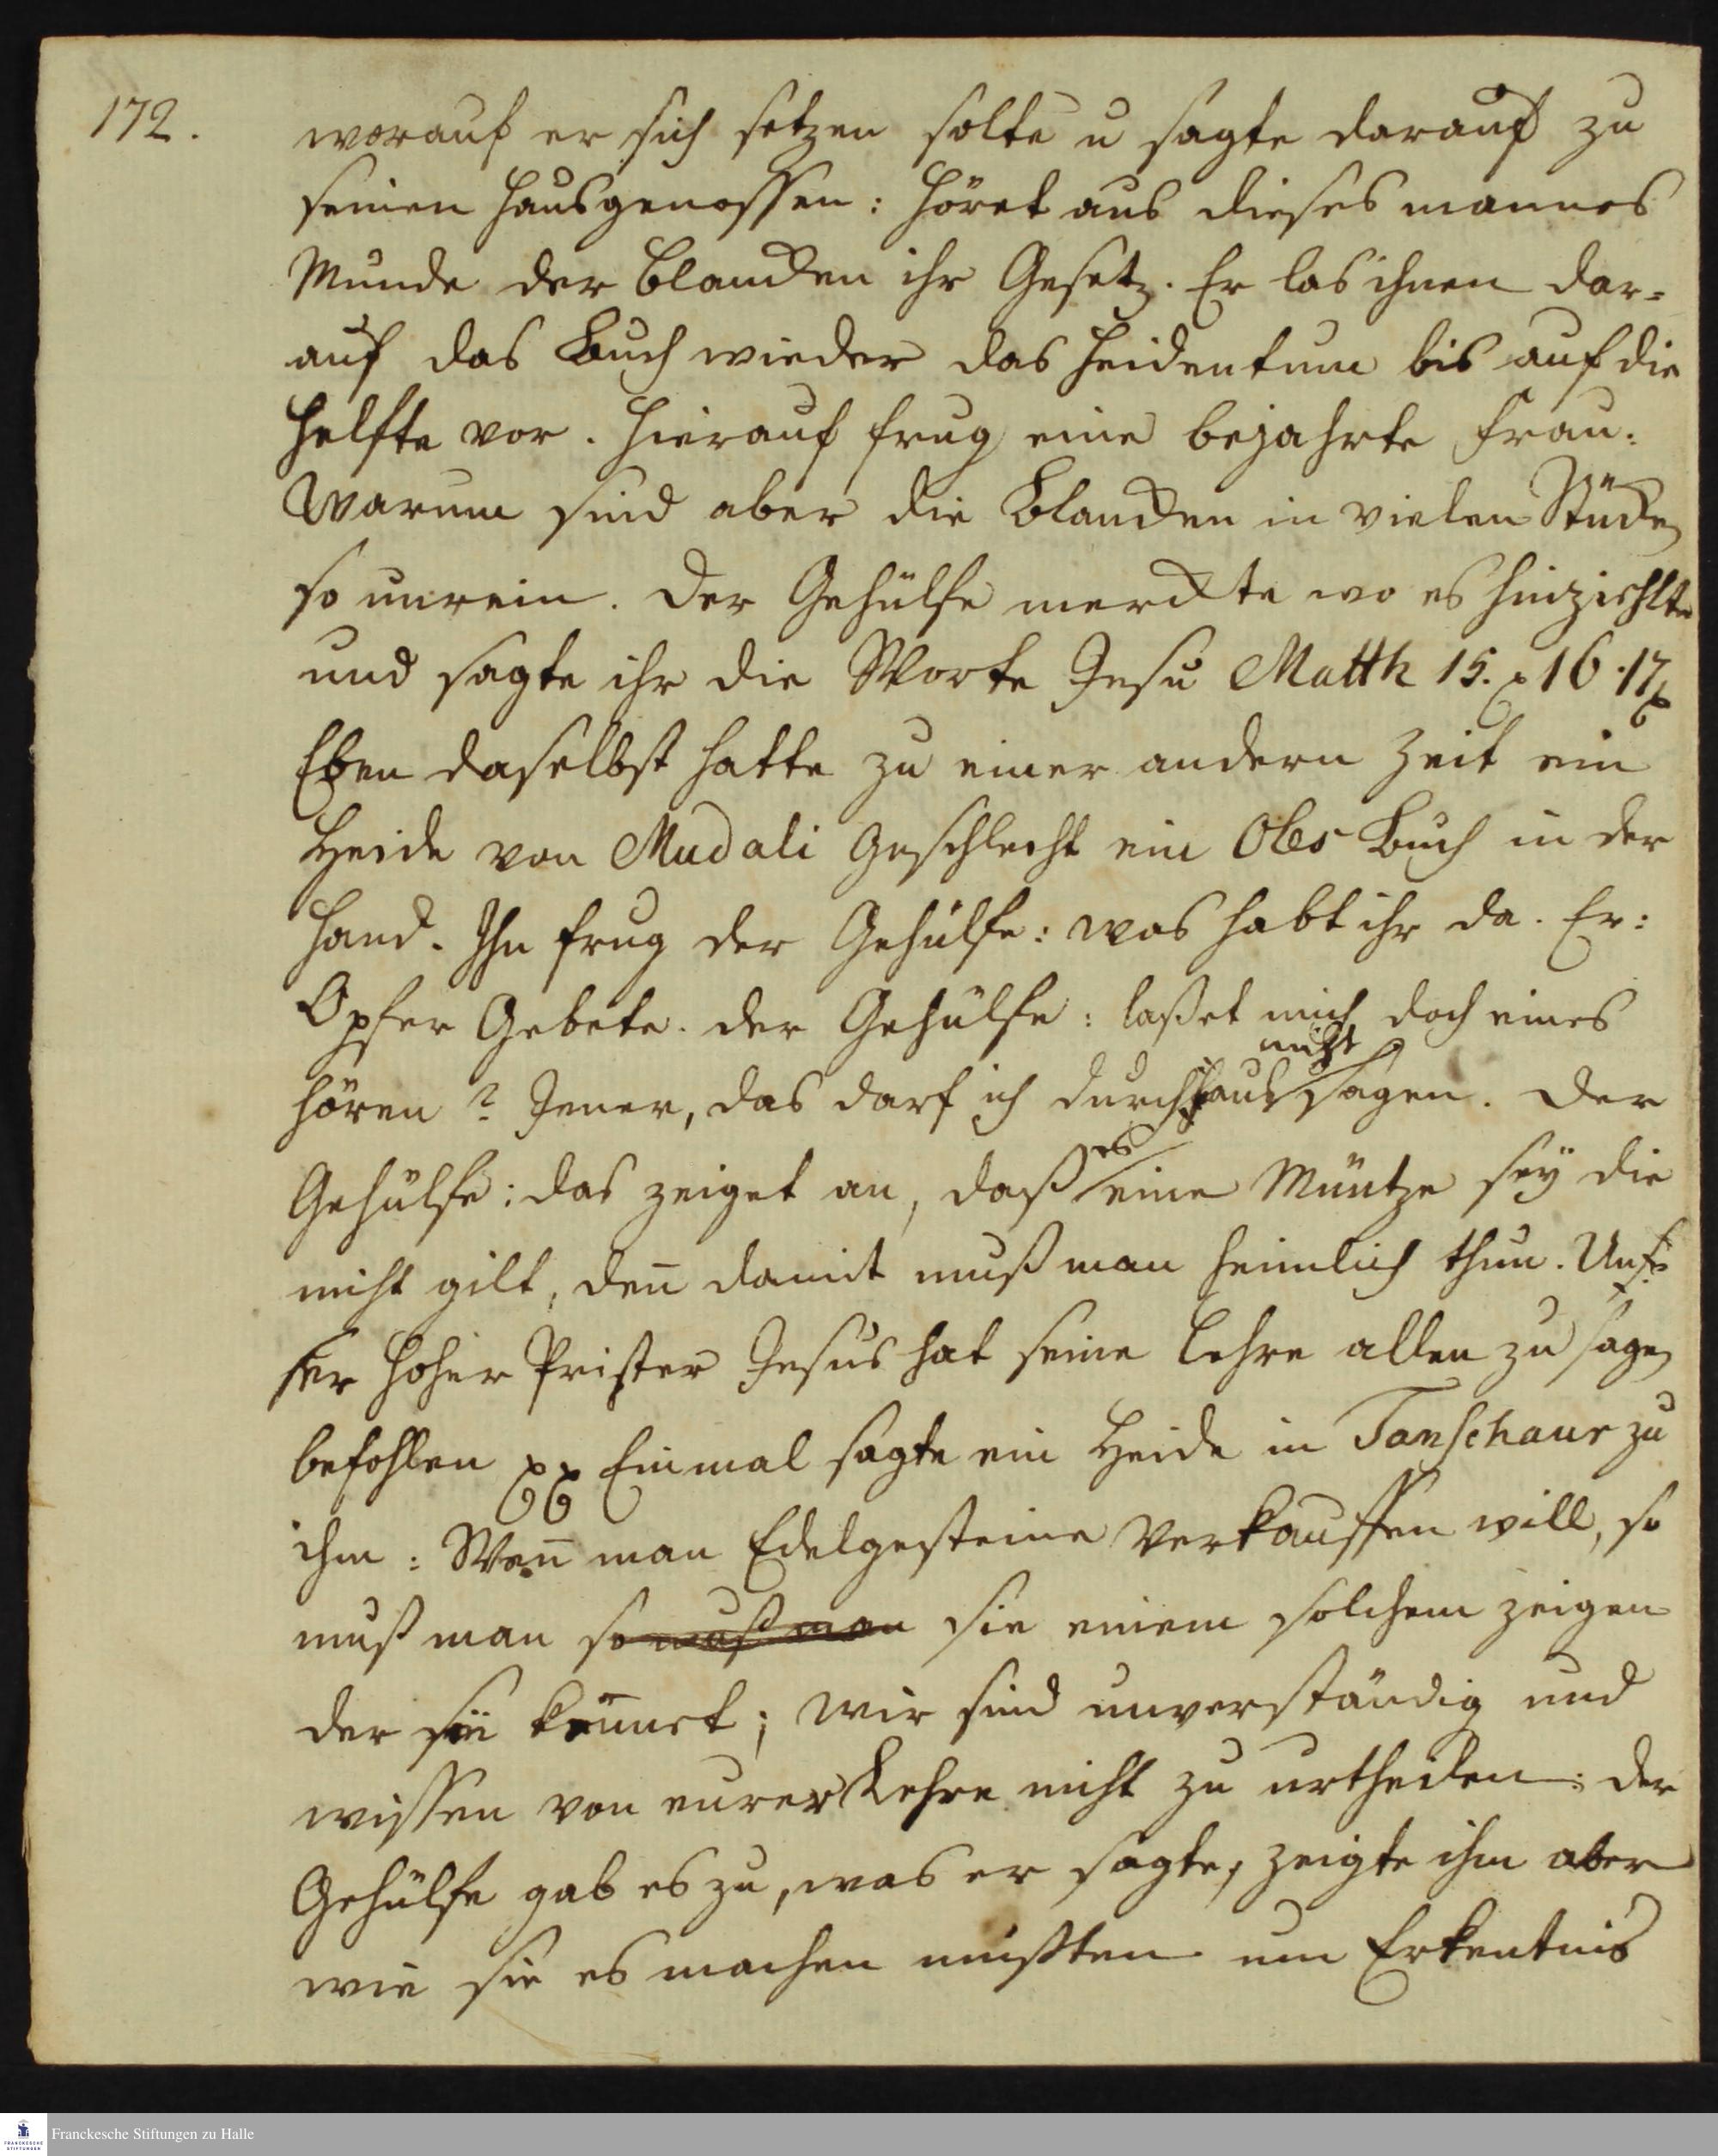 172.
worauf er sich setzen solte u sagte darauf zu
seinen Hausgenossen: Höret aus dieses mannes
Munde der Blancken ihr Gesetz. Er las ihnen dar=
auf das Buch wieder das Heidentum bis auf die
Helfte vor. Hierauf frug eine bejahrte Frau:
Warum sind aber die Blancken in vielen Stücken
so unrein. Der Gehülfe merckte wo es hinziehlte
und sagte ihr die Worte Jesu Matth 15. 16.17
Eben daselbst hatte zu einer andern Zeit ein
Heide von Mudali Geschlecht ein Oles Buch in der
Hand. Ihn frug der Gehülfe: was habt ihr da. Er:
Opfer Gebete. der Gehülfe: laßet mich doch eines
hören? Jener, das darf ich durchaus nicht sagen. Der
Gehülfe: das zeiget an, daß es eine Müntze seÿ die
nicht gilt, deñ damit muß man heimlich thun. Unse
ser Hoher Prister Jesus hat seine Lehre allen zu sagen
befohlen Einmal sagte ein Heide in Tanschaur zu
ihm: Weñ man Edelgesteine verkauffen will, so
muß man so muß man sie einem solchem zeigen
der sie keñnet; wir sind unverständig und
wissen von eurer Lehre nicht zu urtheilen: der
Gehülfe gab es zu, was er sagte, zeigte ihm aber
wie sie es machen müßten um Erkentnis
Franckesche Stiftungen zu Halle